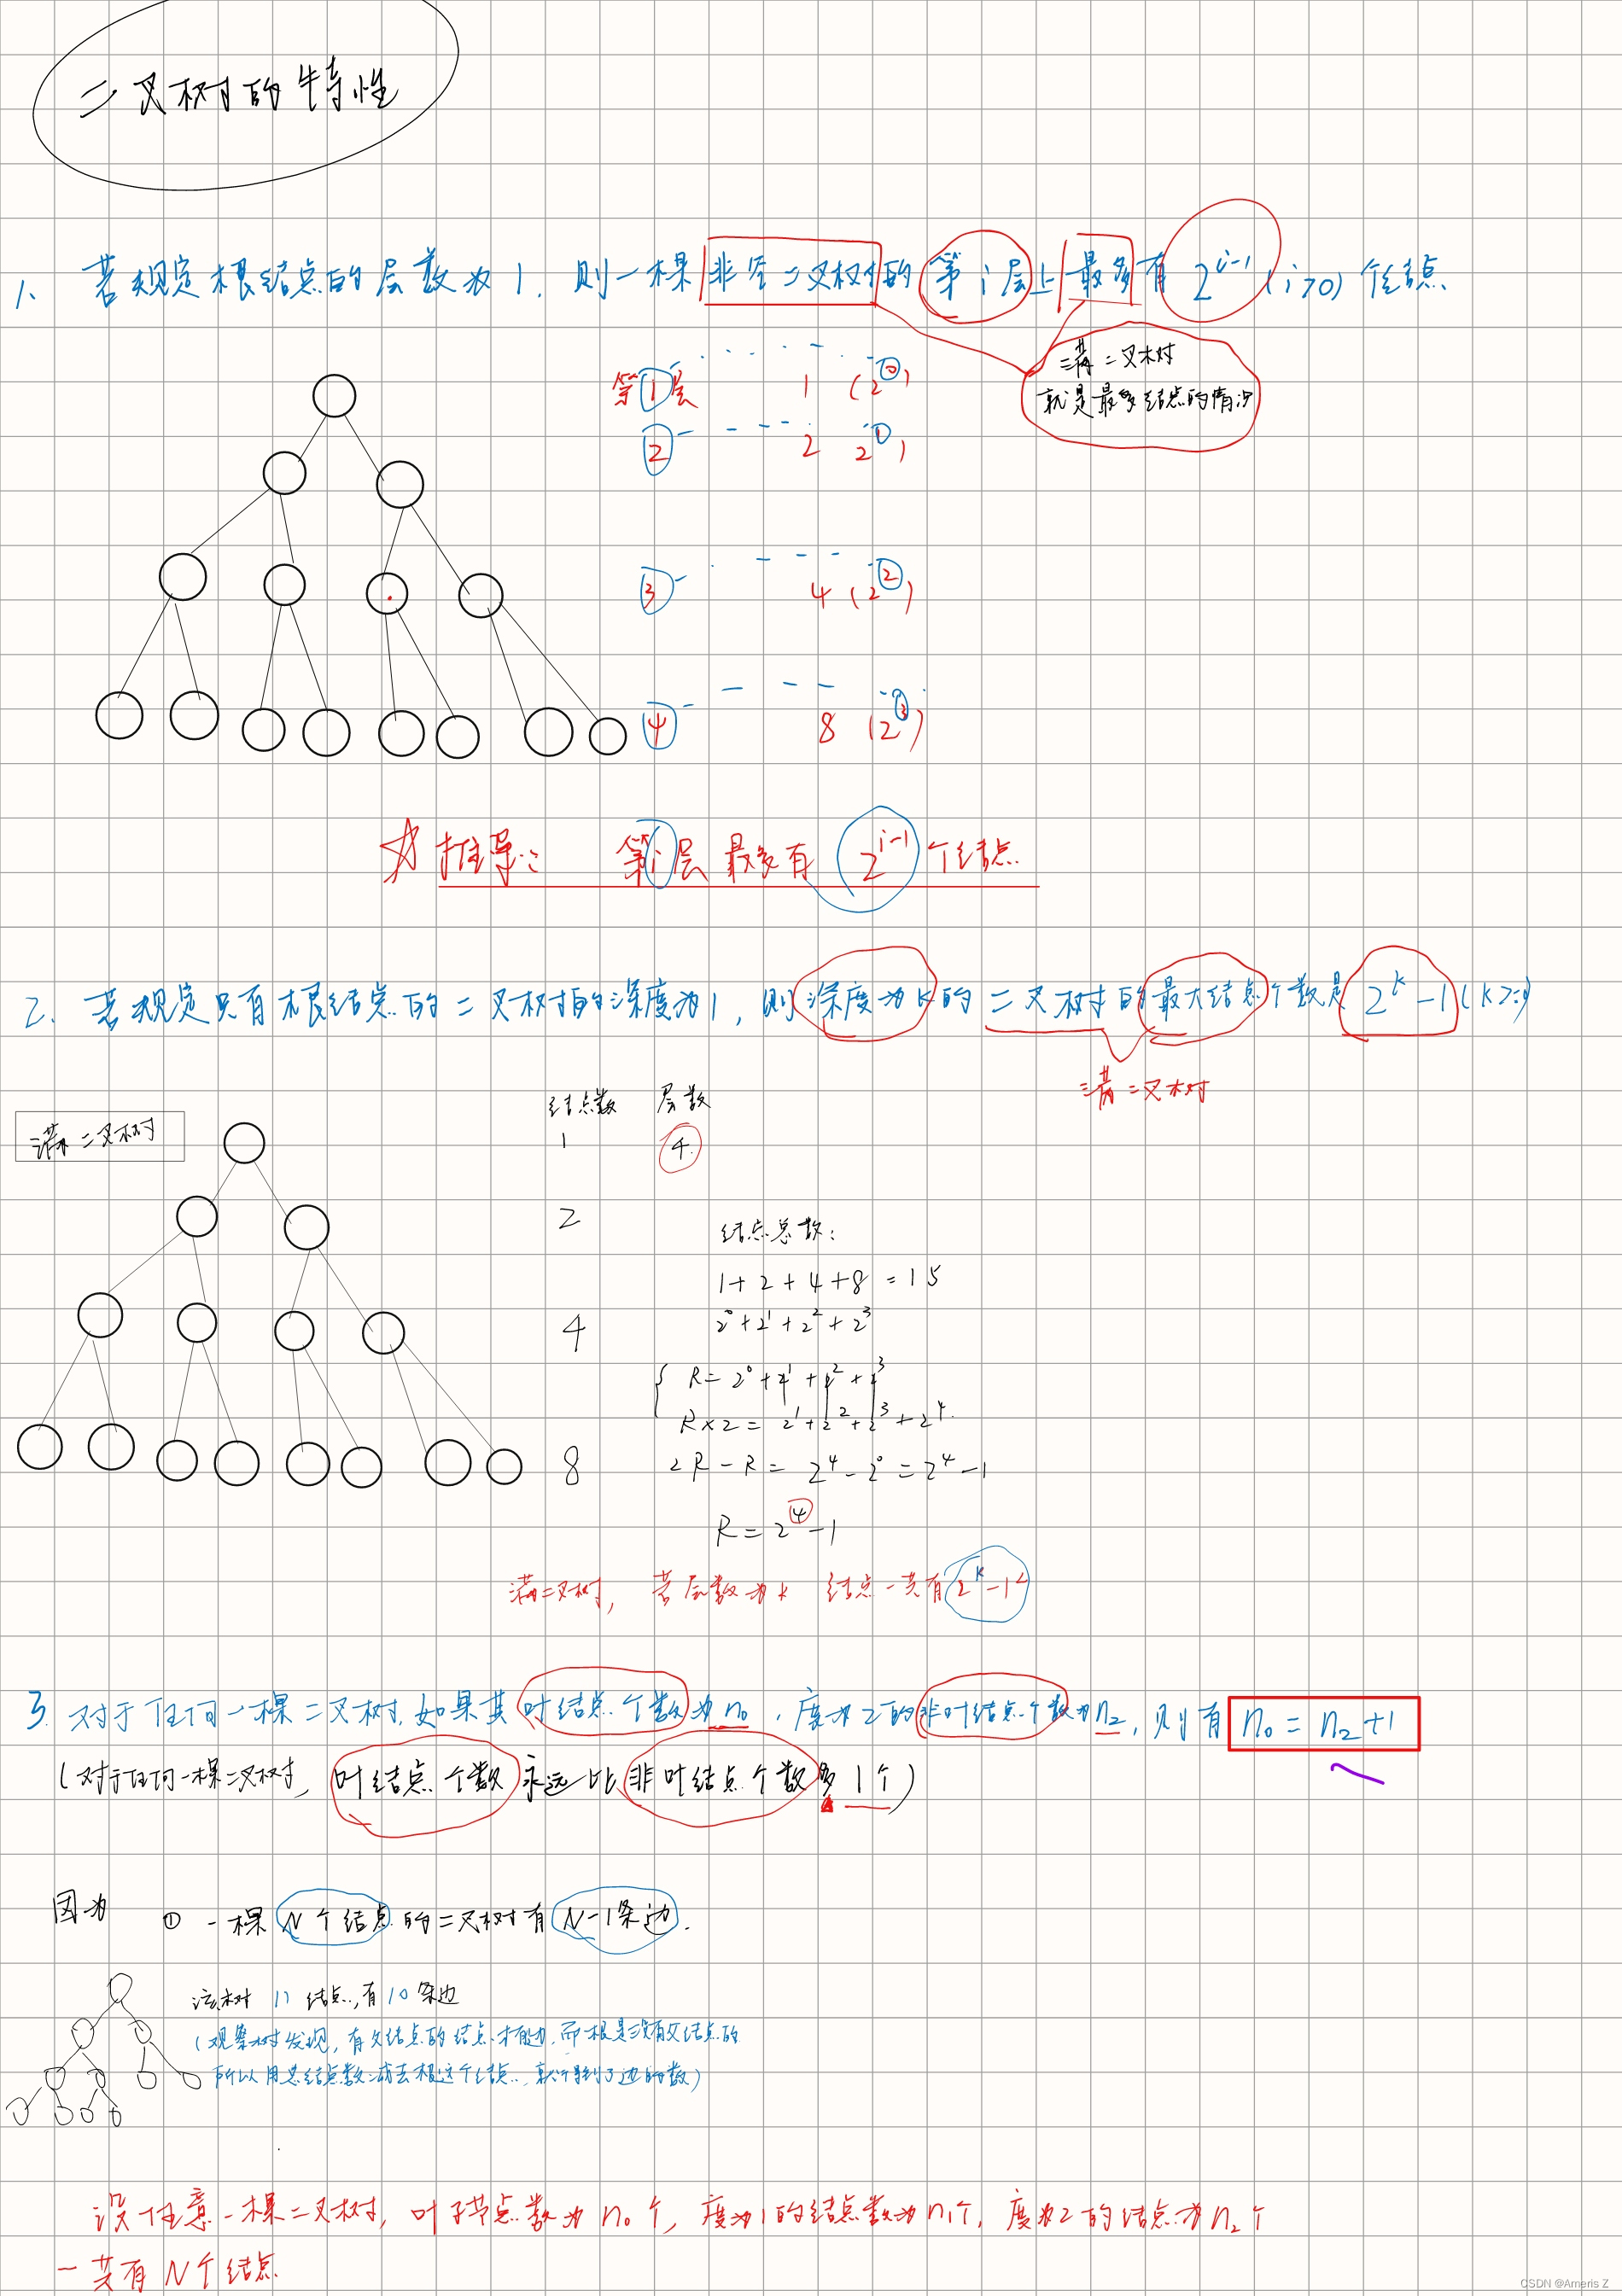 二叉树的特性
1、若规定根结点的层数为1,则一棵非空二叉树的第i层上最多有 2^(i-1) (i>0) 个结点
满二叉树
就是最多结点的情况
第1层 1 (2^0)
2 2 2^1)
3 4 (2^2)
4 8 (2^3)
推导: 第i层最多有 2^(i-1) 个结点
2、若规定只有根结点的二叉树的深度为1,则深度为k的二叉树的最大结点个数是 2^k-1 (k>=0)
满二叉树
满二叉树
结点数 层数
1 4
2
4
8
结点总数:
1+2+4+8=15
2^0+2^1+2^2+2^3
R=2^0+2^1+2^2+2^3
R×2=2^1+2^2+2^3+2^4
2R-R=2^4-2^0=2^4-1
R=2^4-1
满二叉树, 若层数为k 结点一共有 2^k-1
3、对于任何一棵二叉树,如果其叶结点个数为n₀,度为2的非叶结点个数为n₂,则有 n₀=n₂+1
(对于任何一棵二叉树,叶结点个数永远比非叶结点个数多1个)
因为 ① 一棵N个结点的二叉树有N-1条边.
该树 11 结点,有10条边
(观察树发现,有父结点的结点才有边,而根是没有父结点的
所以用总结点数减去根这个结点,就得到了边的数)
设任意一棵二叉树,叶子节点数为n₀个,度为1的结点数为n₁个,度为2的结点为n₂个
一共有N个结点
CSDN @Ameris Z